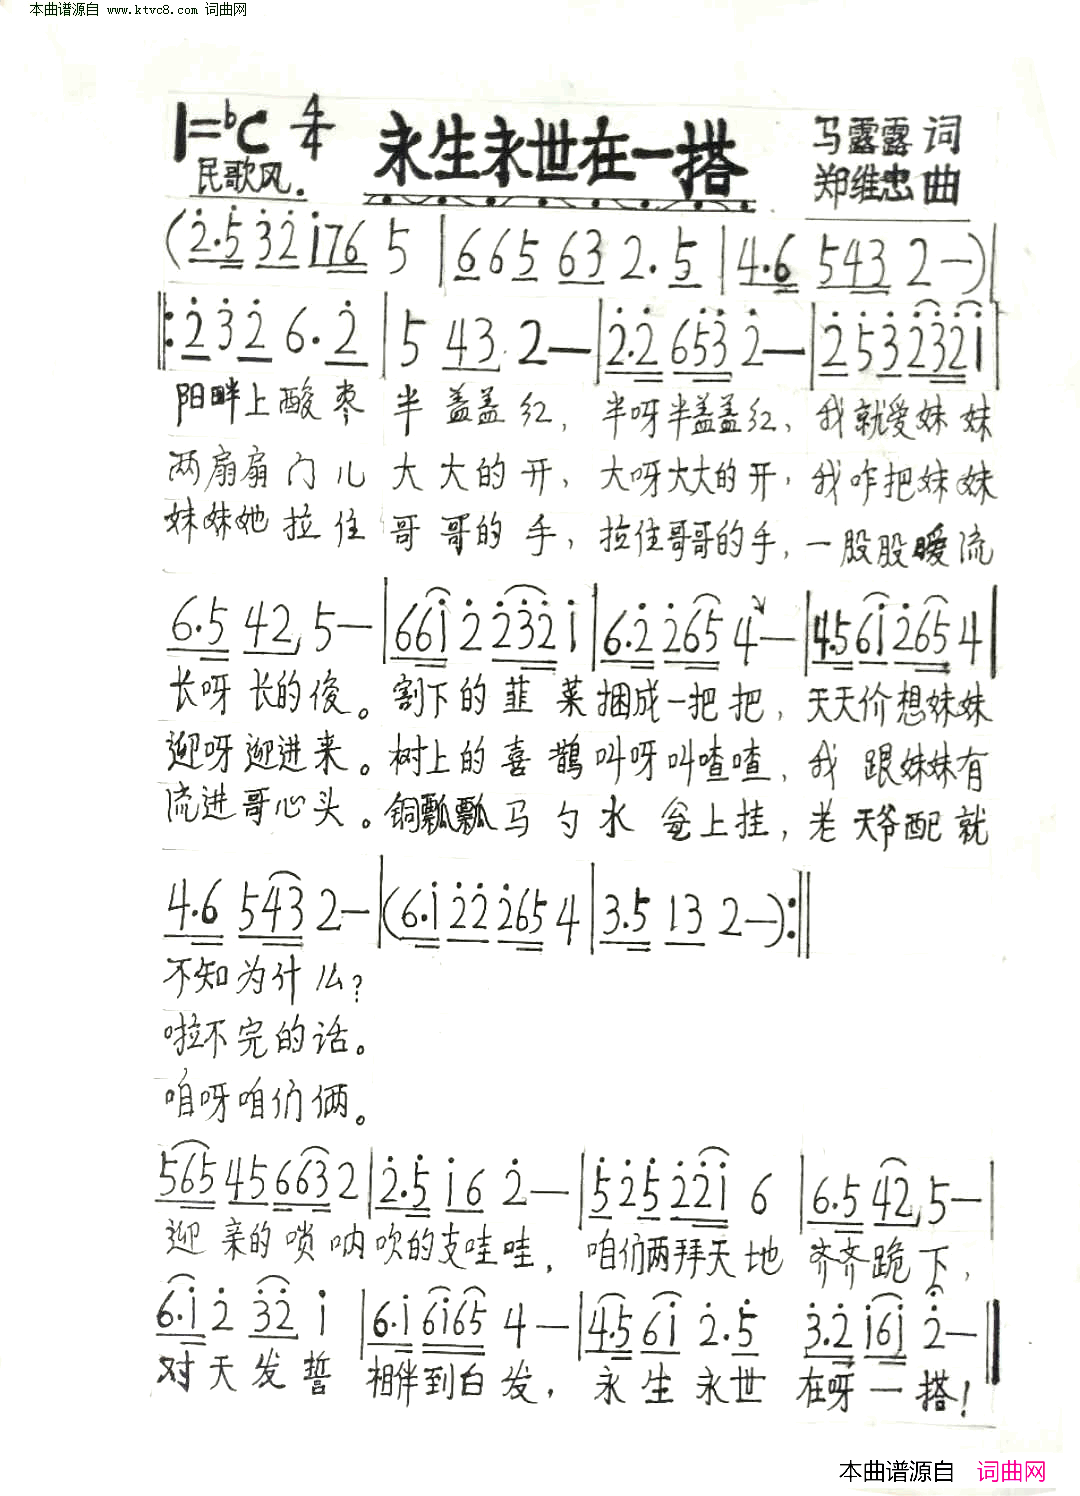 本曲谱源自 www.ktvc8.com 词曲网
1=bC 4/4 永生永世在一搭 马露露 词
民歌风. 郑维忠 曲
(2.5 32 176 5 | 6 65 63 2. 5 | 4.6 543 2 —) |
‖: 2 3 2 6. 2 | 5 43 2 — | 2.2 653 2 — | 2 5 3 2321 |
阳畔上酸枣 半盖盖红, 半呀半盖盖红, 我就爱妹妹
两扇扇门儿 大大的开, 大呀大大的开, 我咋把妹妹
妹妹她拉住 哥哥的手, 拉住哥哥的手, 一股股暖流
6.5 42 5 — | 661 2 232 1 | 6.2 265 4 — | 4.5 61 265 4 |
长呀长的俊。 割下的韮菜捆成一把把, 天天价想妹妹
迎呀迎进来。 树上的喜鹊叫呀叫喳喳, 我跟妹妹有
流进哥心头。 铜瓢瓢马勺水瓮上挂, 老天爷配就
4.6 543 2 — | (6.1 22 265 4 | 3.5 13 2 —) :‖
不知为什么?
啦不完的话。
咱呀咱们俩。
565 45 663 2 | 2.5 16 2 — | 5 2 5 221 6 | 6.5 42 5 — |
迎亲的唢呐吹的支哇哇, 咱们两拜天地 齐齐跪下,
6.1 2 32 1 | 6.1 6165 4 — | 4.5 61 2. 5 3.2 161 2 — ‖
对天发誓 相伴到白发, 永生永世 在呀一搭!
本曲谱源自 词曲网